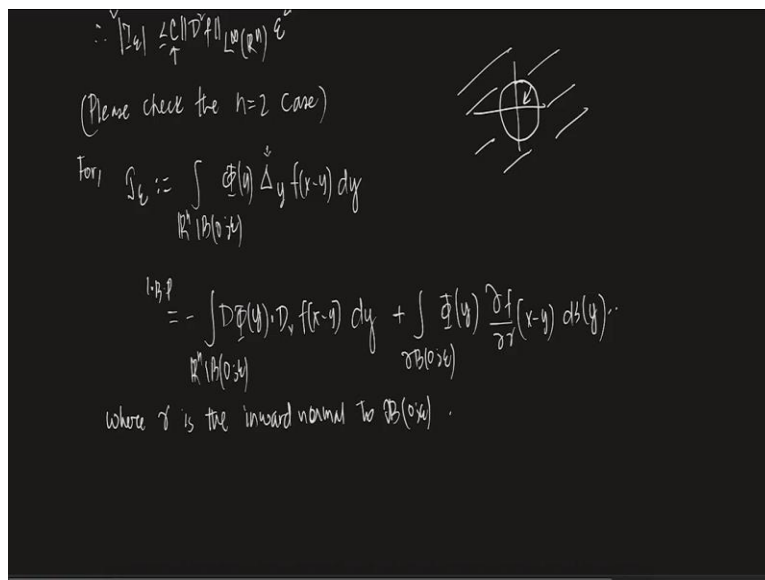 ∴ |I_ε| ≤ C ||D²f||_{L^∞(ℝⁿ)} ε²
↑
(Please check the n=2 case)
For, J_ε := ∫_{ℝⁿ\B(0;ε)} Φ(y) Δ_y f(x-y) dy
I·B·P
= - ∫_{ℝⁿ\B(0;ε)} DΦ(y)·D_y f(x-y) dy + ∫_{∂B(0;ε)} Φ(y) ∂f/∂γ (x-y) dS(y)..
where γ is the inward normal to ∂B(0;ε).